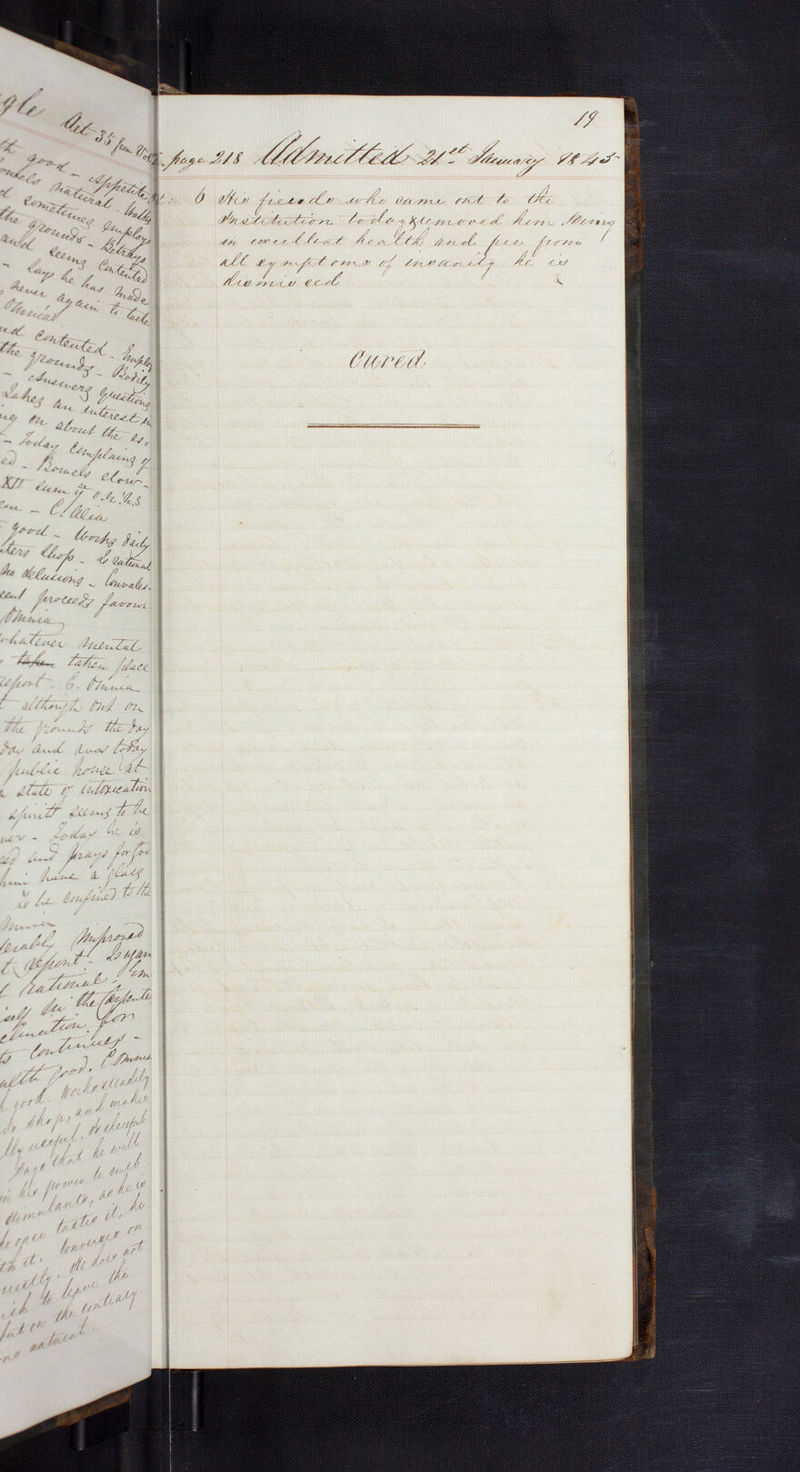 gle Aet 35 from Vol
th good - Appetite
owels natural. Walks
d sometimes employs
the grounds - Betrays
and seems Contented
- Says he has made
never again to taste
Omnia
nd contented. Employ
the grounds - Bodily
- Answers questions
Takes an interest in
ng on about the es
- Today Complains of
ed - Bowels slow -
XII
- C. Alia
good - Works daily
ters Shop - Is rational
No delusions - Convales-
cent proceeds favour
Omnia
whatever mental
taken taken place
report - C. Omnia
although out on
the grounds the day
day and was today
public house at
a state of intoxication
spirits seems to be
- Today he is
and prays for
him have a glass
to be confined to the
Omnia
erably Improved
t report - Is again
rational - Em
self in the Carpente
clination for
to Continues -
alth good. C Omnia
good. Works steadily
shop, and makes
lly useful. Is cheerful
Says that he will
in his power to curb
stimulants, as he is
he once tastes it, he
th it. Converses on
. He does not
ish to leave the
but on the contrary
natural.
19
page 218 Admitted 21st January 1845
6 His friends who came out to the
Institution today removed him. Being
in excellent health and free from
all symptoms of insanity he is
dismissed
Cured